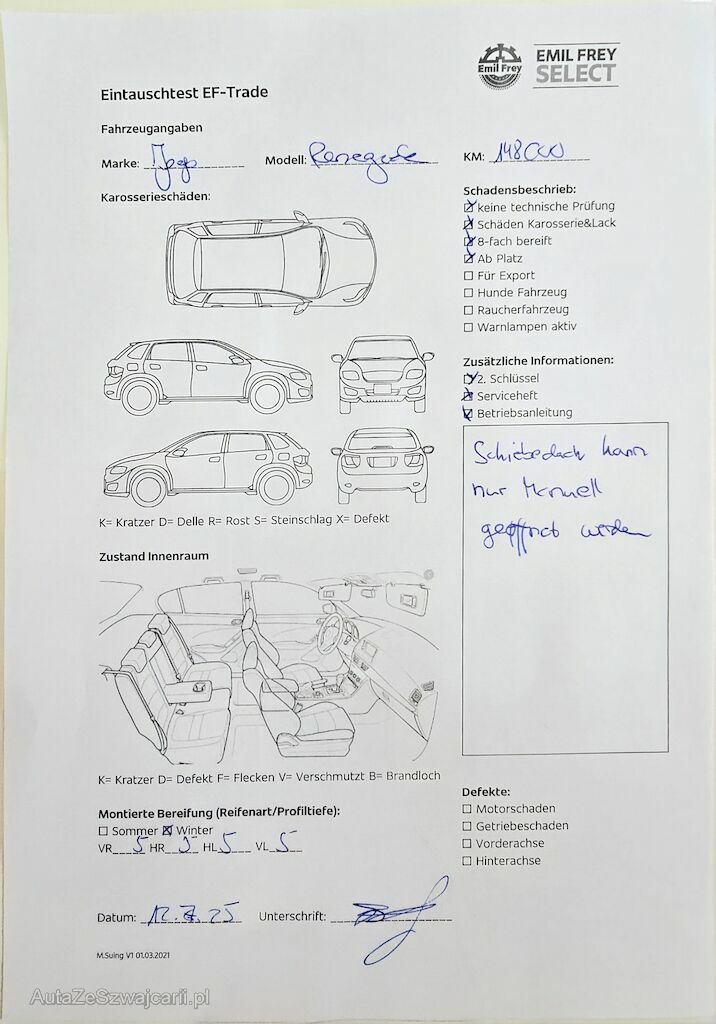 Emil Frey
EMIL FREY
SELECT
Eintauschtest EF-Trade
Fahrzeugangaben
Marke: Jeep Modell: Renegade KM: 148000
Karosserieschäden:
K= Kratzer D= Delle R= Rost S= Steinschlag X= Defekt
Zustand Innenraum
K= Kratzer D= Defekt F= Flecken V= Verschmutzt B= Brandloch
Montierte Bereifung (Reifenart/Profiltiefe):
Sommer Winter
VR 5 HR 5 HL 5 VL 5
Schadensbeschrieb:
keine technische Prüfung
Schäden Karosserie&Lack
8-fach bereift
Ab Platz
Für Export
Hunde Fahrzeug
Raucherfahrzeug
Warnlampen aktiv
Zusätzliche Informationen:
2. Schlüssel
Serviceheft
Betriebsanleitung
Schiebedach kann
nur Manuell
geöffnet werden
Defekte:
Motorschaden
Getriebeschaden
Vorderachse
Hinterachse
Datum: 12.7.25 Unterschrift:
M.Suing V1 01.03.2021
AutaZeSzwajcarii.pl